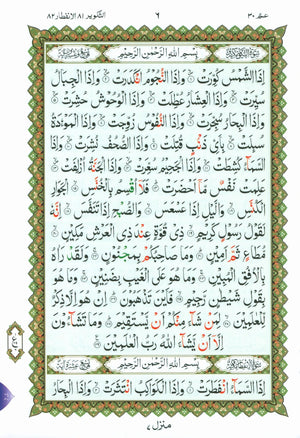 عم ٣٠ ٦ التكوير ٨١ الانفطار ٨٢
بِسْمِ اللهِ الرَّحْمٰنِ الرَّحِيْمِ
اِذَا الشَّمْسُ كُوِّرَتْ ۝ وَاِذَا النُّجُوْمُ انْكَدَرَتْ ۝ وَاِذَا الْجِبَالُ
سُيِّرَتْ ۝ وَاِذَا الْعِشَارُ عُطِّلَتْ ۝ وَاِذَا الْوُحُوْشُ حُشِرَتْ ۝
وَاِذَا الْبِحَارُ سُجِّرَتْ ۝ وَاِذَا النُّفُوْسُ زُوِّجَتْ ۝ وَاِذَا الْمَوْءٗدَةُ
سُئِلَتْ ۝ بِاَيِّ ذَنْۢبٍ قُتِلَتْ ۝ وَاِذَا الصُّحُفُ نُشِرَتْ ۝ وَاِذَا
السَّمَآءُ كُشِطَتْ ۝ وَاِذَا الْجَحِيْمُ سُعِّرَتْ ۝ وَاِذَا الْجَنَّةُ اُزْلِفَتْ ۝
عَلِمَتْ نَفْسٌ مَّاۤ اَحْضَرَتْ ۝ فَلَاۤ اُقْسِمُ بِالْخُنَّسِ ۝ الْجَوَارِ
الْكُنَّسِ ۝ وَالَّيْلِ اِذَا عَسْعَسَ ۝ وَالصُّبْحِ اِذَا تَنَفَّسَ ۝ اِنَّهٗ
لَقَوْلُ رَسُوْلٍ كَرِيْمٍ ۝ ذِيْ قُوَّةٍ عِنْدَ ذِي الْعَرْشِ مَكِيْنٍ ۝
مُّطَاعٍ ثَمَّ اَمِيْنٍ ۝ وَمَا صَاحِبُكُمْ بِمَجْنُوْنٍ ۝ وَلَقَدْ رَاٰهُ
بِالْاُفُقِ الْمُبِيْنِ ۝ وَمَا هُوَ عَلَى الْغَيْبِ بِضَنِيْنٍ ۝ وَمَا هُوَ
بِقَوْلِ شَيْطٰنٍ رَّجِيْمٍ ۝ فَاَيْنَ تَذْهَبُوْنَ ۝ اِنْ هُوَ اِلَّا ذِكْرٌ
لِّلْعٰلَمِيْنَ ۝ لِمَنْ شَآءَ مِنْكُمْ اَنْ يَّسْتَقِيْمَ ۝ وَمَا تَشَآءُوْنَ
اِلَّاۤ اَنْ يَّشَآءَ اللهُ رَبُّ الْعٰلَمِيْنَ ۝
بِسْمِ اللهِ الرَّحْمٰنِ الرَّحِيْمِ
اِذَا السَّمَآءُ انْفَطَرَتْ ۝ وَاِذَا الْكَوَاكِبُ انْتَثَرَتْ ۝ وَاِذَا الْبِحَارُ
منزل ٧